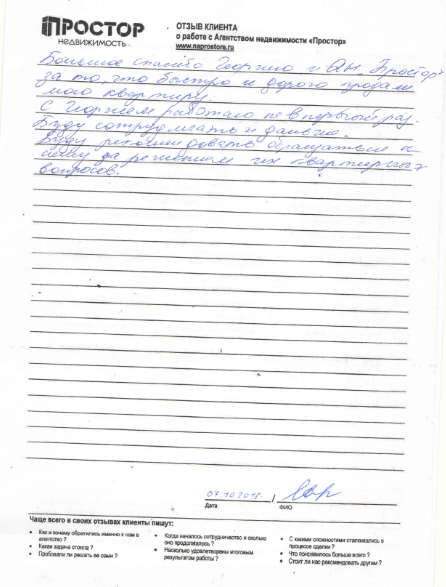 ПРОСТОР
НЕДВИЖИМОСТЬ
ОТЗЫВ КЛИЕНТА
о работе с Агентством недвижимости «Простор»
www.naprostore.ru
Большое спасибо Георгию и АН „Простор"
за то, что быстро и дорого продали
мою квартиру.
С Георгием работаю не в первый раз.
Буду сотрудничать и дальше.
Буду рекомендовать обращаться к
нему за решением их квартирных
вопросов.
07.10.2018 /
Дата ФИО
Чаще всего в своих отзывах клиенты пишут:
• Как и почему обратились именно к нам в
агентство ?
• Какая задача стояла ?
• Пробовали ли решать ее сами ?
• Когда началось сотрудничество и сколько
оно продолжалось ?
• Насколько удовлетворены итоговым
результатом работы ?
• С какими сложностями сталкивались в
процессе сделки ?
• Что понравилось больше всего ?
• Стоит ли нас рекомендовать другим ?